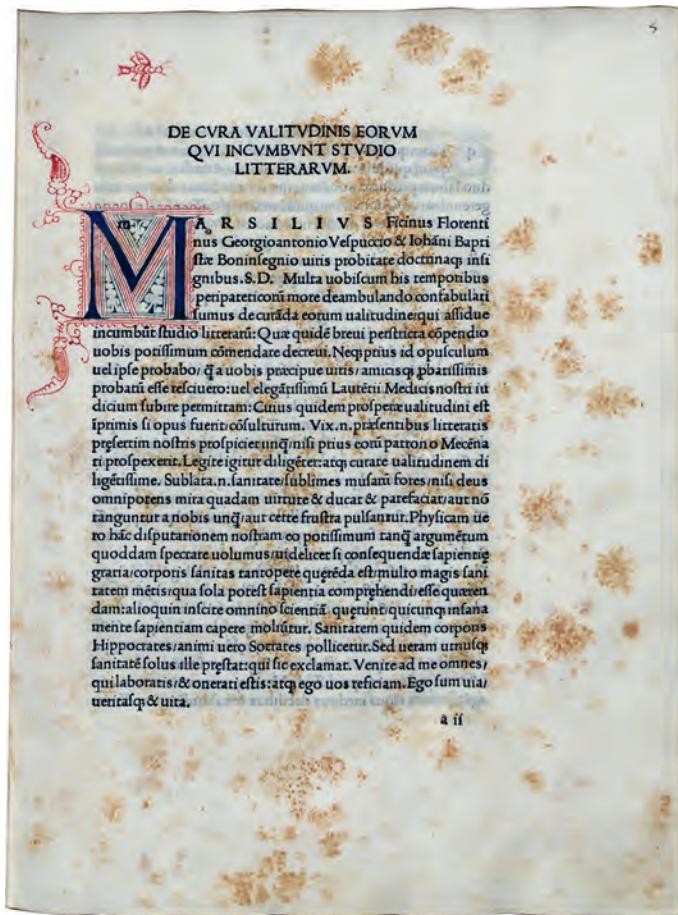 5
DE CVRA VALITVDINIS EORVM
QVI INCVMBVNT STVDIO
LITTERARVM.
MARSILIVS Ficinus Florenti
nus Georgioantonio Vespuccio & Iohāni Bapti
stæ Boninsegnio uiris probitate doctrinaq; insi
gnibus.S.D. Multa uobiscum his temporibus
peripateticorū more deambulando confabulati
sumus de curāda eorum ualitudine/qui assidue
incumbūt studio litterarū: Quæ quidē breui perstricta cōpendio
uobis potissimum cōmendare decreui. Neq; prius id opusculum
uel ipse probabo/ q̄ a uobis præcipue uiris/ amicisq; ꝓbatissimis
probatū esse resciuero: uel elegātissimū Lautētii Medicis nostri iu
dicium subire permittam: Cuius quidem prosperæ ualitudini est
īprimis si opus fuerit cōsulturum. Vix.n.præsentibus litteratis
pręsertim nostris prospicietunq̄/nisi prius eorū patrono Mecēna
ti prospexerit. Legite igitur diligēter: atq; curate ualitudinem di
ligētissime. Sublata.n.sanitate/sublimes musarū fores/nisi deus
omnipotens mira quadam uirtute & ducat & patefaciat/aut nō
tanguntur a nobis unq̄/aut certe frustra pulsantur. Physicam ue
ro hāc disputationem nostram eo potissimum tanq̄ argumētum
quoddam spectare uolumus/uidelicet si consequendæ sapientię
gratia/corporis sanitas tantopere quęrēda est/multo magis sani
tatem mētis/qua sola potest sapientia comprehendi/esse quæren
dam: alioquin inscite omnino scientiā quęrunt/quicunq; insana
mente sapientiam capere moliūtur. Sanitatem quidem corporis
Hippocrates/animi uero Socrates pollicetur. Sed ueram utriusq;
sanitatē solus ille pręstat: qui sic exclamat. Venite ad me omnes/
qui laboratis/& onerati estis: atq; ego uos reficiam. Ego sum uia/
ueritasq; & uita.
a ii